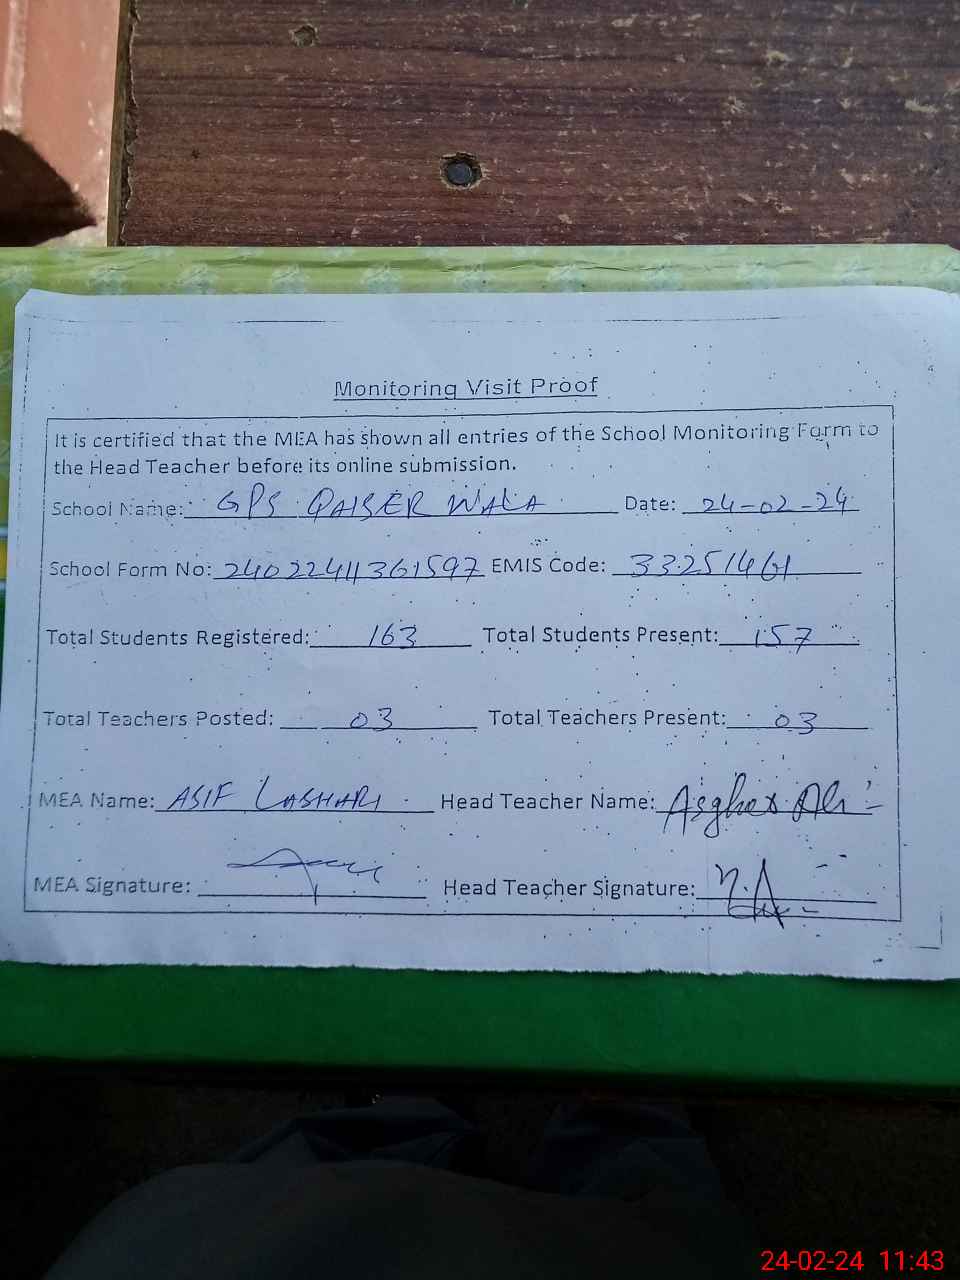 Monitoring Visit Proof
It is certified that the MEA has shown all entries of the School Monitoring Form to
the Head Teacher before its online submission.
School Name: GPS QAISER WALA Date: 24-02-24
School Form No: 24022411361597 EMIS Code: 33251461
Total Students Registered: 163 Total Students Present: 157
Total Teachers Posted: 03 Total Teachers Present: 03
MEA Name: ASIF LASHARI Head Teacher Name: Asghar Ali
MEA Signature: Head Teacher Signature:
24-02-24 11:43